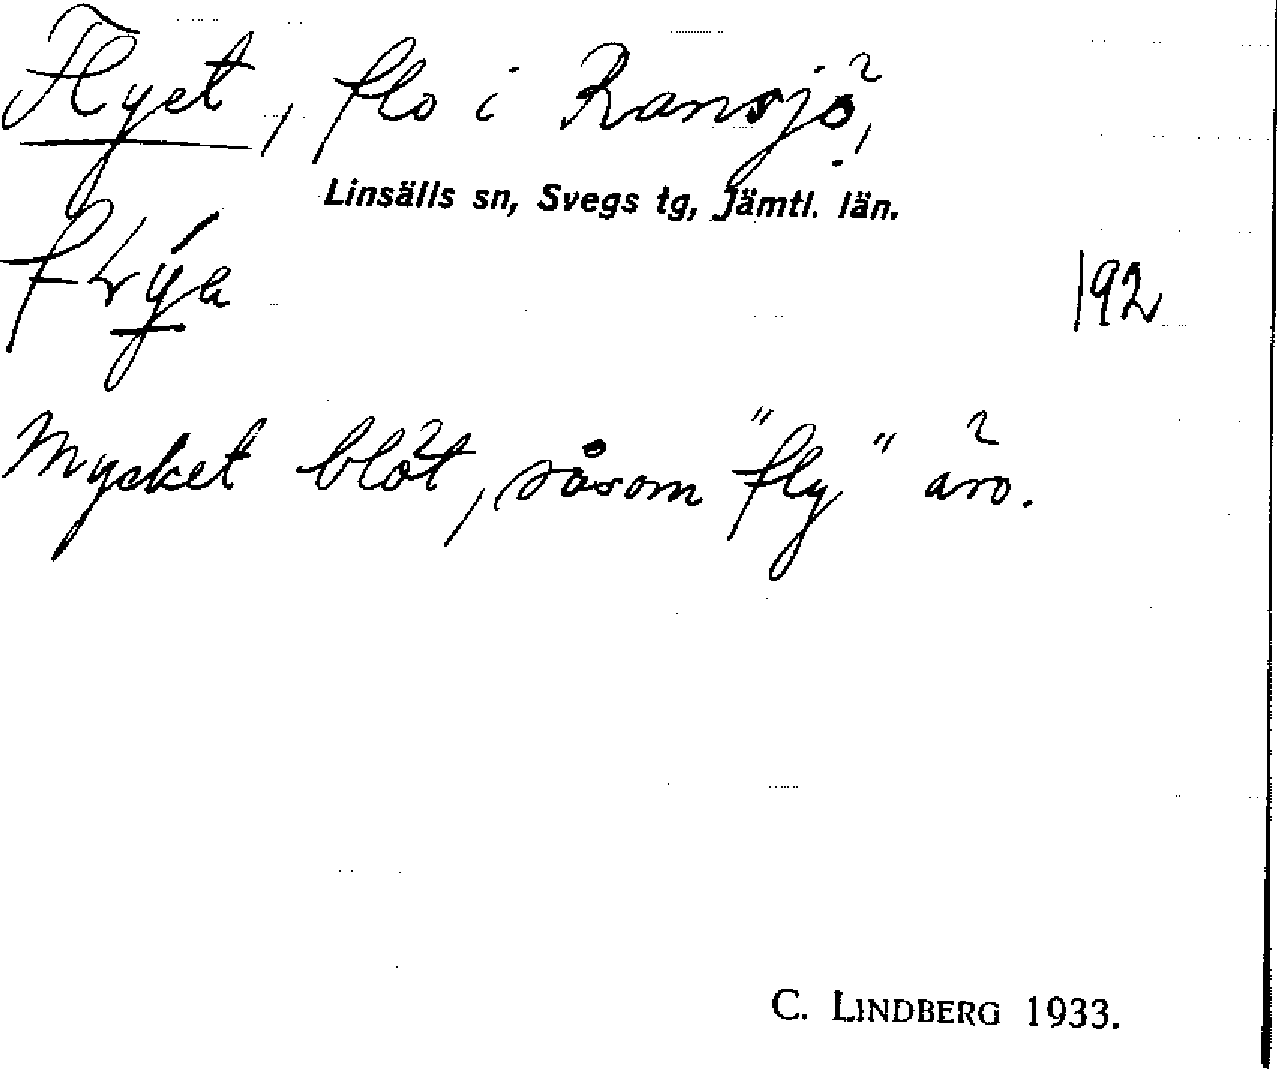 Flyet, flo i Ransjö,
Linsälls sn, Svegs tg, Jämtl. län.
192
Mycket blöt, såsom "fly" äro.
C. LINDBERG 1933.